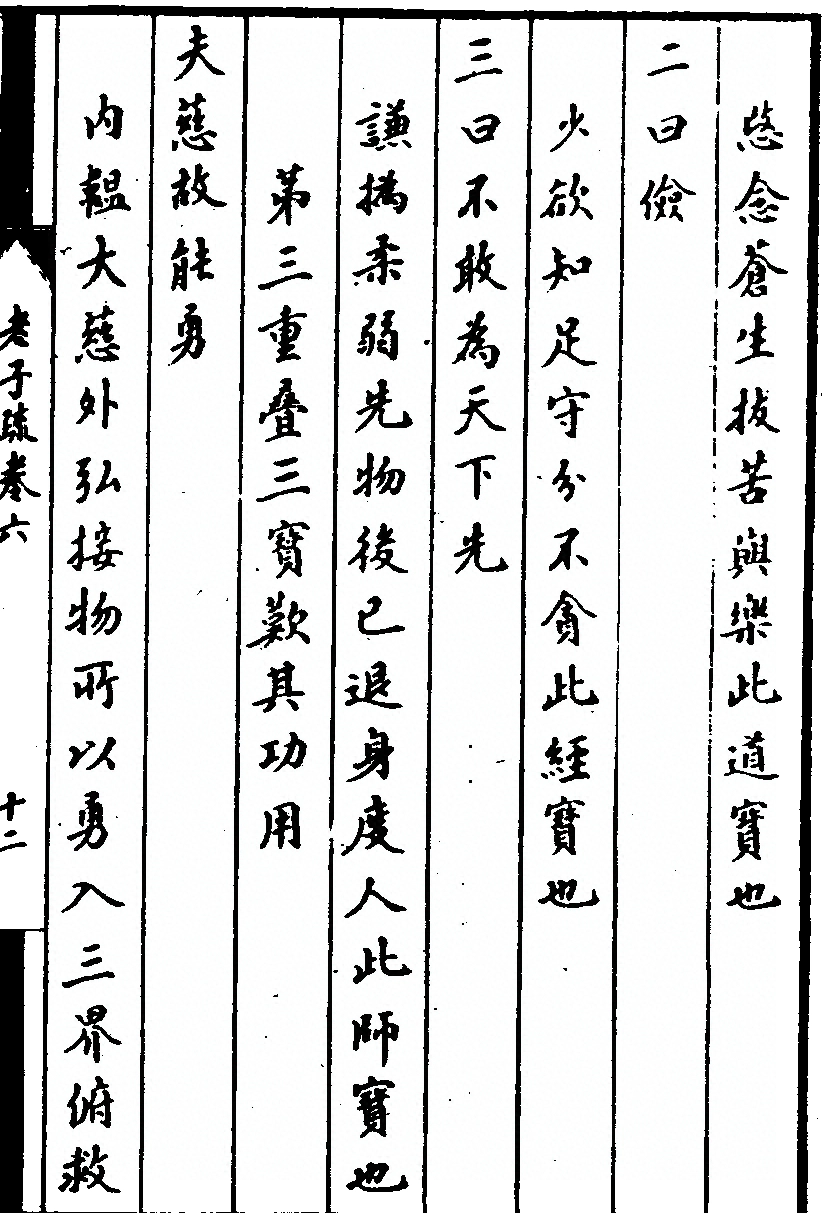 慈念蒼生拔苦與樂此道寶也
二曰儉
少欲知足守分不貪此經寶也
三曰不敢為天下先
謙撝柔弱先物後己退身度人此師寶也
第三重疊三寶歎其功用
夫慈故能勇
内韞大慈外弘接物所以勇入三界俯救
老子疏卷六
十二